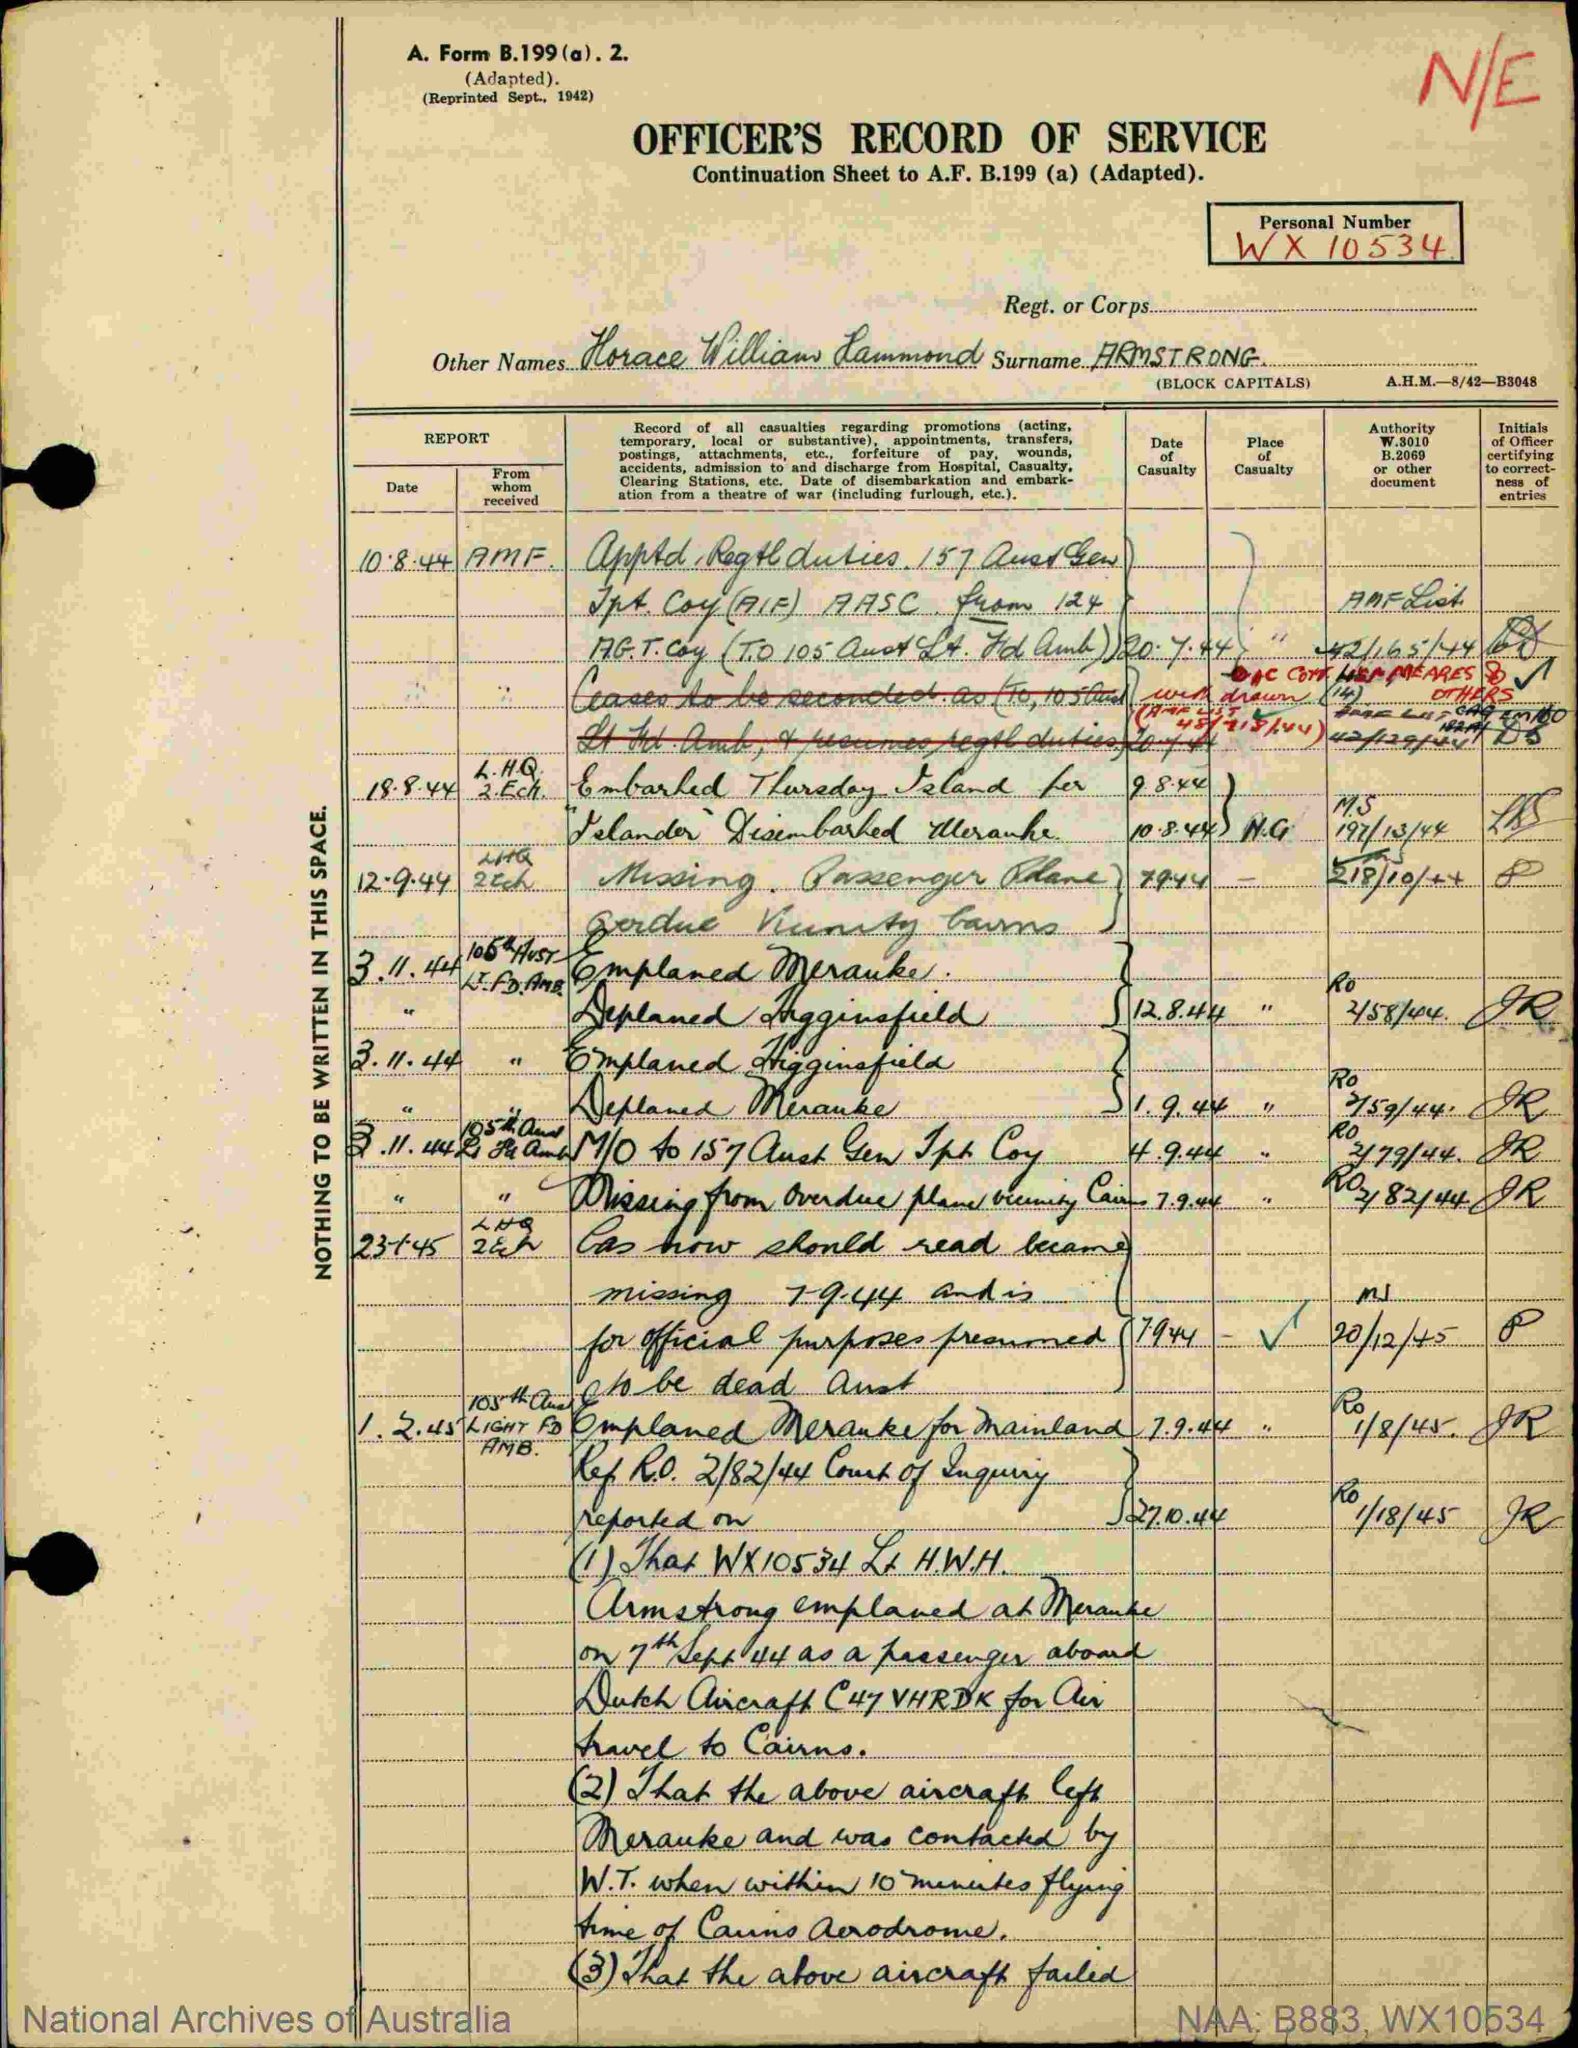 A. Form B.199 (a). 2.
(Adapted).
(Reprinted Sept., 1942)
N/E
OFFICER'S RECORD OF SERVICE
Continuation Sheet to A.F. B.199 (a) (Adapted).
Personal Number
WX 10534
Regt. or Corps
Other Names Horace William Hammond Surname ARMSTRONG
(BLOCK CAPITALS) A.H.M.—8/42—B3048
REPORT
Date
From whom received
Record of all casualties regarding promotions (acting,
temporary, local or substantive), appointments, transfers,
postings, attachments, etc., forfeiture of pay, wounds,
accidents, admission to and discharge from Hospital, Casualty,
Clearing Stations, etc. Date of disembarkation and embark-
ation from a theatre of war (including furlough, etc.).
Date of Casualty
Place of Casualty
Authority W.3010 B.2069 or other document
Initials of Officer certifying to correct-ness of entries
NOTHING TO BE WRITTEN IN THIS SPACE.
10.8.44 AMF. Apptd. Regtl duties. 157 Aust Gen
Tpt. Coy (AIF) AASC. from 124 AMF List
A.G.T. Coy (T.O 105 Aust Lt. Fd Amb) 20.7.44 " 42/165/44
Ceases to be seconded as (TO, 105 Aust withdrawn (14) OTHERS
Lt Fd. Amb, & resumes regtl duties 20.7.44 42/129/44
18.8.44 L.H.Q. 2.Ech. Embarked Thursday Island per 9.8.44
"Islander" Disembarked Merauke 10.8.44 N.G M.S 197/13/44
12.9.44 LHQ 2Ech Missing. Passenger Plane 7944 — 218/10/44
overdue Vicinity Cairns
3.11.44 105th AUST LT. FD. AMB. Emplaned Merauke.
" Deplaned Higginsfield 12.8.44 " RO 2/58/44. JR
3.11.44 " Emplaned Higginsfield
" " Deplaned Merauke 1.9.44 " RO 2/59/44. JR
3.11.44 105th Aust Lt Fd Amb M/O to 157 Aust Gen Tpt Coy 4.9.44 " RO 2/79/44. JR
" " Missing from overdue plane vicinity Cairns 7.9.44 " RO 2/82/44 JR
23.1.45 LHQ 2Ech Cas now should read became
missing 7.9.44 and is
for official purposes presumed 7944 — MS 20/12/45
to be dead Aust
1.2.45 105th Aust LIGHT FD AMB. Emplaned Merauke for Mainland 7.9.44 " RO 1/8/45. JR
Ref R.O. 2/82/44 Court of Inquiry
reported on 27.10.44 RO 1/18/45 JR
(1) That WX10534 Lt H.W.H.
Armstrong emplaned at Merauke
on 7th Sept 44 as a passenger aboard
Dutch Aircraft C47 VHRDK for Air
travel to Cairns.
(2) That the above aircraft left
Merauke and was contacted by
W.T. when within 10 minutes flying
time of Cairns Aerodrome.
(3) That the above aircraft failed
National Archives of Australia
NAA: B883, WX10534